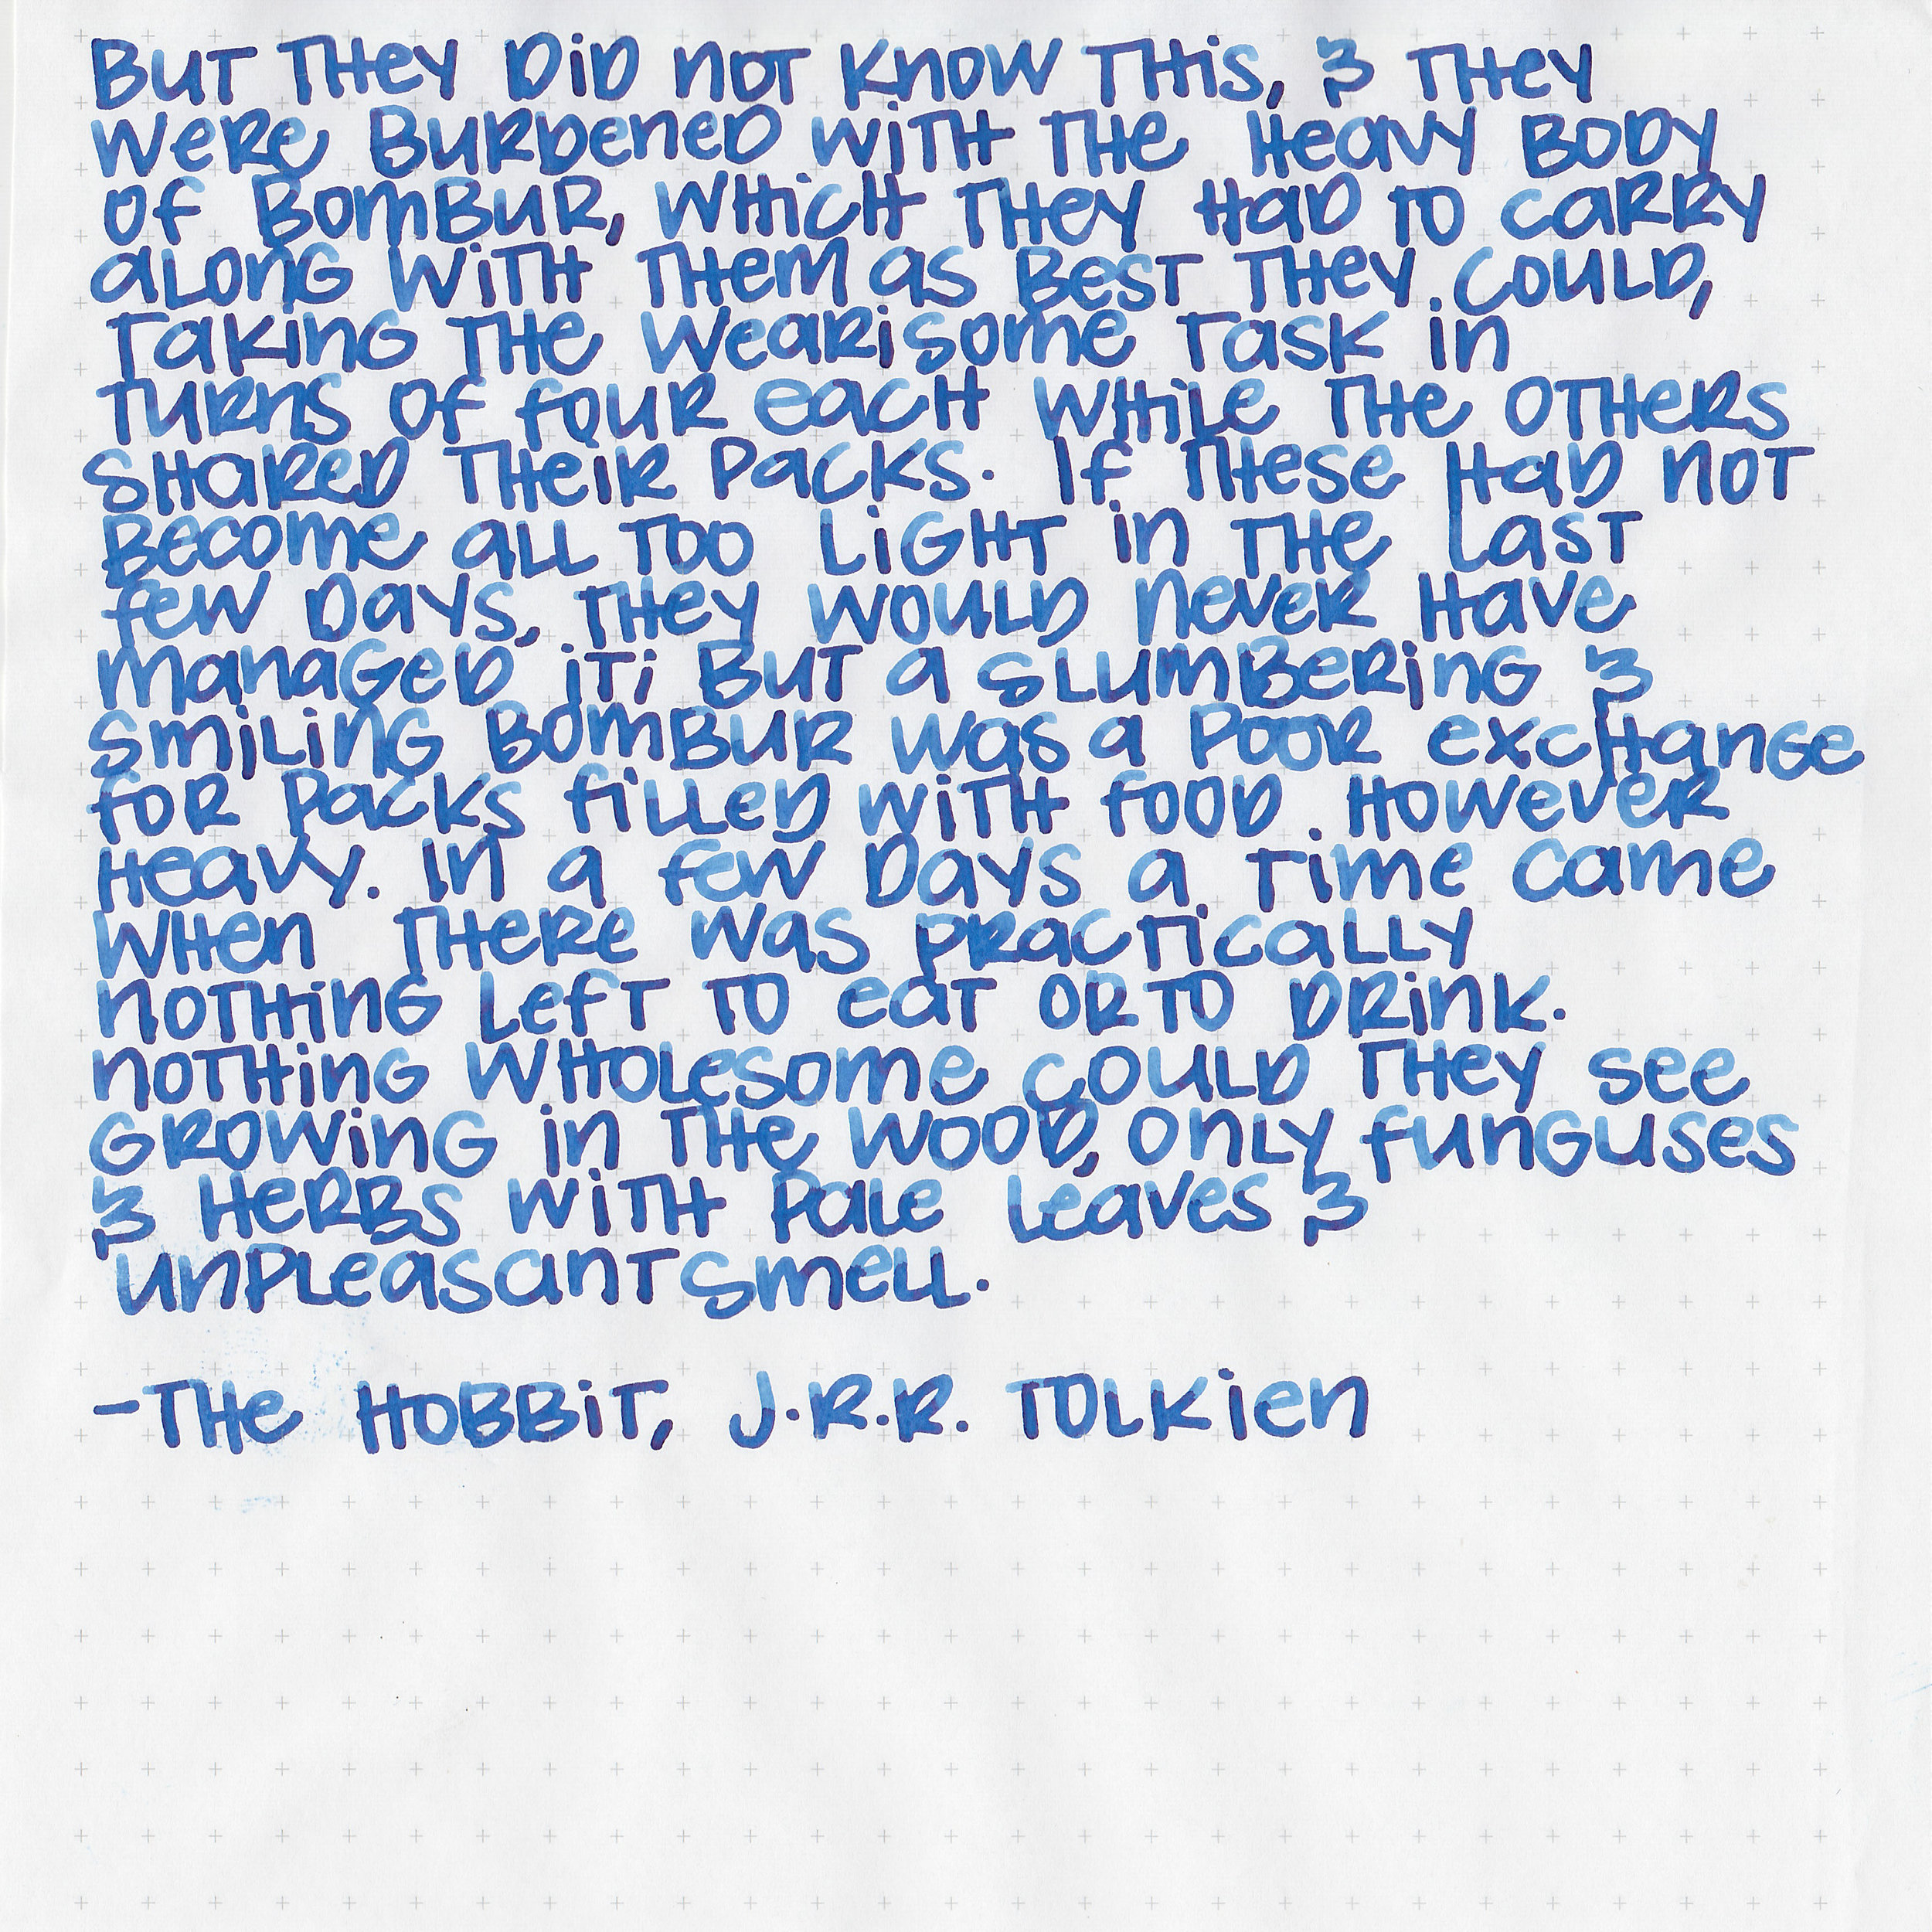 But they did not know this, & they
were burdened with the heavy body
of Bombur, which they had to carry
along with them as best they could,
taking the wearisome task in
turns of four each while the others
shared their packs. If these had not
become all too light in the last
few days, they would never have
managed it; but a slumbering &
smiling Bombur was a poor exchange
for packs filled with food however
heavy. In a few days a time came
when there was practically
nothing left to eat or to drink.
nothing wholesome could they see
growing in the wood, only funguses
& herbs with pale leaves &
unpleasant smell.
-The Hobbit, J.R.R. Tolkien